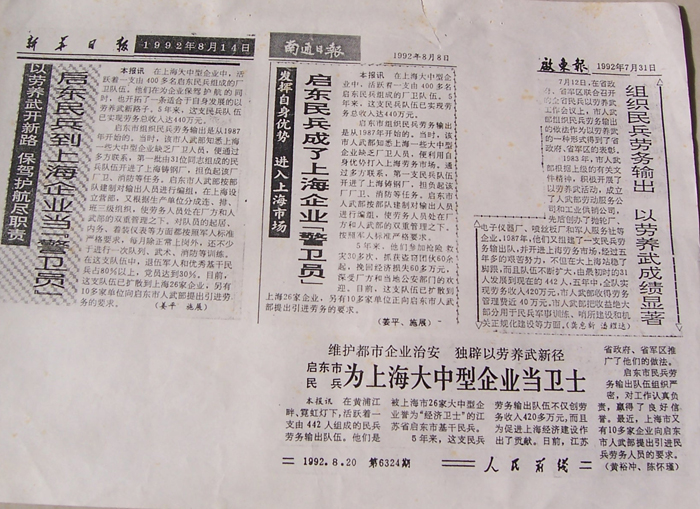 新华日报 1992年8月14日
以劳养武开新路 保驾护航尽职责
启东民兵到上海企业当“警卫员”
本报讯 在上海大中型企业中，活
跃着一支由400多名启东民兵组成的厂
卫队伍。他们在为企业保驾护航的同
时，也开拓了一条适合于自身发展的以
劳养武新路子。5年来，这支民兵队伍已
实现劳务总收入达440万元。
启东市组织民兵劳务输出是从1987
年开始的。当时，该市人武部知悉上海一
些大中型企业缺乏厂卫人员，便通过
多方联系，第一批由31位同志组成的民
兵队伍开进了上海铸钢厂，担负起该厂
厂卫、消防等任务。启东市人武部按部
队建制对输出人员进行编组，在上海设
立营部，又根据生产单位分成连、排、
班三级组织，使劳务人员处在厂方和人
武部的双重管理之下，对队员的起居、
内务、着装仪表等方面都按照军人标准
严格要求，每月除正常上岗外，还不少
于进行一次队列、武术、消防等训练。
在这支队伍中，退伍军人和优秀基干民兵
占80％以上，党员达到30％。目前，
这支队伍已扩散到上海26家企业，另有
10多家单位向启东市人武部提出引进劳
务的要求。
（姜平 施展）
南通日报
1992年8月8日
发挥自身优势 进入上海市场
启东民兵成了上海企业“警卫员”
本报讯 在上海大中型企业中，活
跃着一支由启东民兵组成的400多名
厂卫队伍。5年
来，这支民兵队伍已实现劳务
总收入达440万元。
启东市组织民兵劳务输出
是从1987年开始的。当时，该
市人武部知悉上海一些大中型
企业缺乏厂卫人员，便利用自
身优势打入上海劳务市场。通
过多方联系，第一支民兵队伍
开进了上海铸钢厂，担负起该
厂厂卫、消防等任务。启东市
人武部按部队建制对输出人员
进行编组，使劳务人员处在厂
方和人武部的双重管理之下，
按照军人标准严格要求。
5年来，他们参加抢险救
灾30多次，抓获盗窃团伙60余
起，挽回经济损失60多万元，
保受厂方和当地公安部门的欢
迎。目前，这支队伍已扩散到
上海26家企业，另有10多家单位正向启东市人武部
提出引进劳务的要求。
（姜平、施展）
启东报 1992年7月31日
组织民兵劳务输出 以劳养武成绩显著
7月12日，在省政
府、省军区联合召开
的全省民兵以劳养武
工作会议上，市人武
部组织民兵劳务输出
的做法作为以劳养武
的一种形式得到了省
政府、省军区的表彰。
1983年，市人武
部根据上级的有关文
件精神，积极开展了
以劳养武活动，成立
了人武部劳动服务公
司和工业供销公司，
先后创办了划粉厂、
电子仪器厂、喷丝板厂和军人服务社等企
业。1987年，他们又组建了一支民兵劳务
输出队伍，并开进上海劳务市场，经过五
年多的艰苦努力，不但在大上海站稳了
脚跟，而且队伍不断扩大，由最初时的31
人发展到现在的442人，五年中，全队实
现劳务收入420万元，市人武部收得劳务
管理费近40万元，市人武部把收益绝大
部分用于民兵军事训练、哨所建设和机
关正规化建设等方面。
维护都市企业治安 独辟以劳养武新径
启东市民兵 为上海大中型企业当卫士
本报讯 在黄浦江
畔、霓虹灯下，活跃着一
支由442人组成的民兵
劳务输出队伍。他们是
被上海市26家大中型企
业誉为“经济卫士”的江
苏省启东市基干民兵。
5年来，这支民兵
劳务输出队伍不仅创劳
务收入420多万元，而且
为促进上海经济建设作
出了贡献。日前，江苏
省政府、省军区推
广了他们的做法。
启东市民兵劳
务输出队伍组织严
密，对工作认真负
责，赢得了良好信
誉。最近，上海市又
有10多家企业向启东
市人武部提出引进民
兵劳务人员的要求。
（黄裕冲、陈怀瑾）
1992.8.20 第6324期 人民前线